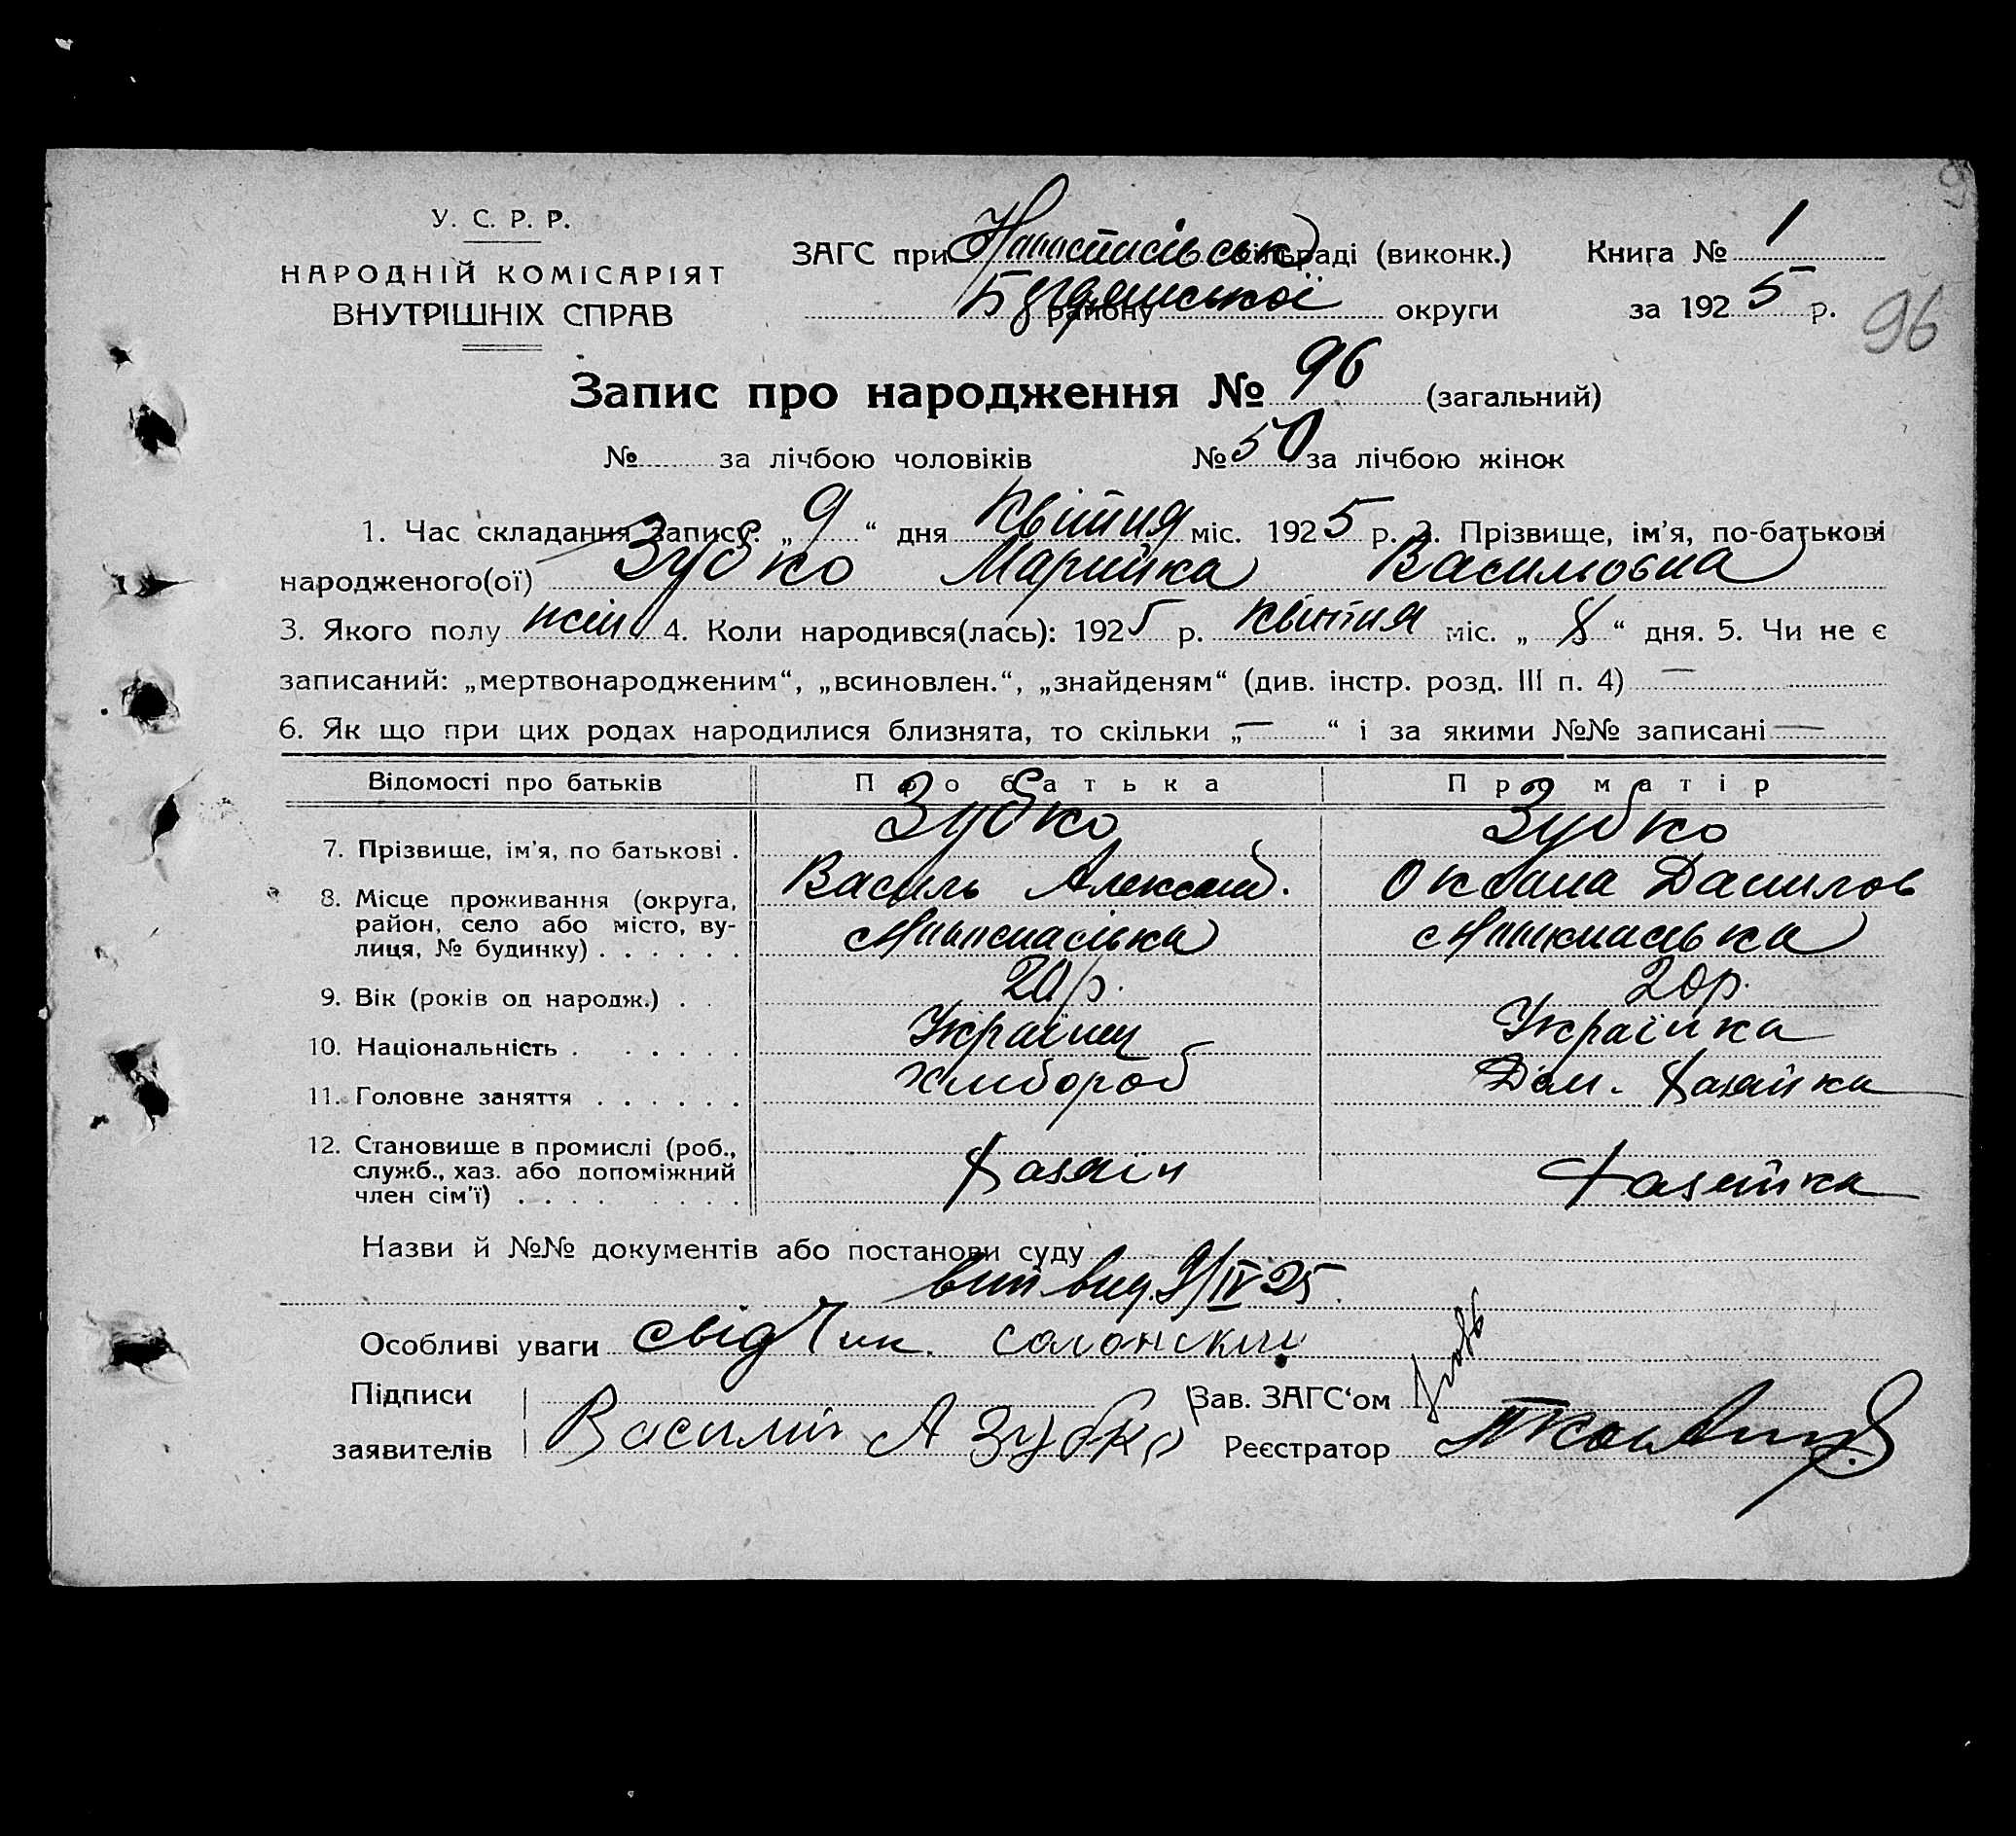 У. С. Р. Р.
НАРОДНІЙ КОМІСАРІЯТ
ВНУТРІШНІХ СПРАВ
ЗАГС при сільраді (виконк.)
району округи
Книга № 1
за 1925 р.
96
Запис про народження № 96 (загальний)
№ за лічбою чоловіків № 50 за лічбою жінок
1. Час складання запису: „ 9 “ дня Квітня міс. 1925 р. 2. Прізвище, ім’я, по-батькові
народженого(ої) Зубко Марийка Васильовна
3. Якого полу жін 4. Коли народився(лась): 1925 р. Квітня міс. „ 8 “ дня. 5. Чи не є
записаний: „мертвонародженим“, „всиновлен.“, „знайденям“ (див. інстр. розд. III п. 4) —
6. Як що при цих родах народилися близнята, то скільки „ — “ і за якими №№ записані —
Відомості про батьків Про батька Про матір
7. Прізвище, ім’я, по батькові . Зубко Зубко
Василь Александ. Оксана Данилов
8. Місце проживання (округа,
район, село або місто, ву-
лиця, № будинку) . . . . . .
9. Вік (років од народж.) . . 20 р. 20 р.
10. Національність . . . . . . Українец Українка
11. Головне заняття . . . . . . Хлибороб Дом. Хазяйка
12. Становище в промислі (роб.,
служб., хаз. або допоміжний
член сім’ї) . . . . . . . . Хазяін Хазяйка
Назви й №№ документів або постанови суду
вип вид. 9/IV 25.
Особливі уваги свід
Підписи
заявителів Василий А Зубко
Зав. ЗАГС‘ом
Реєстратор